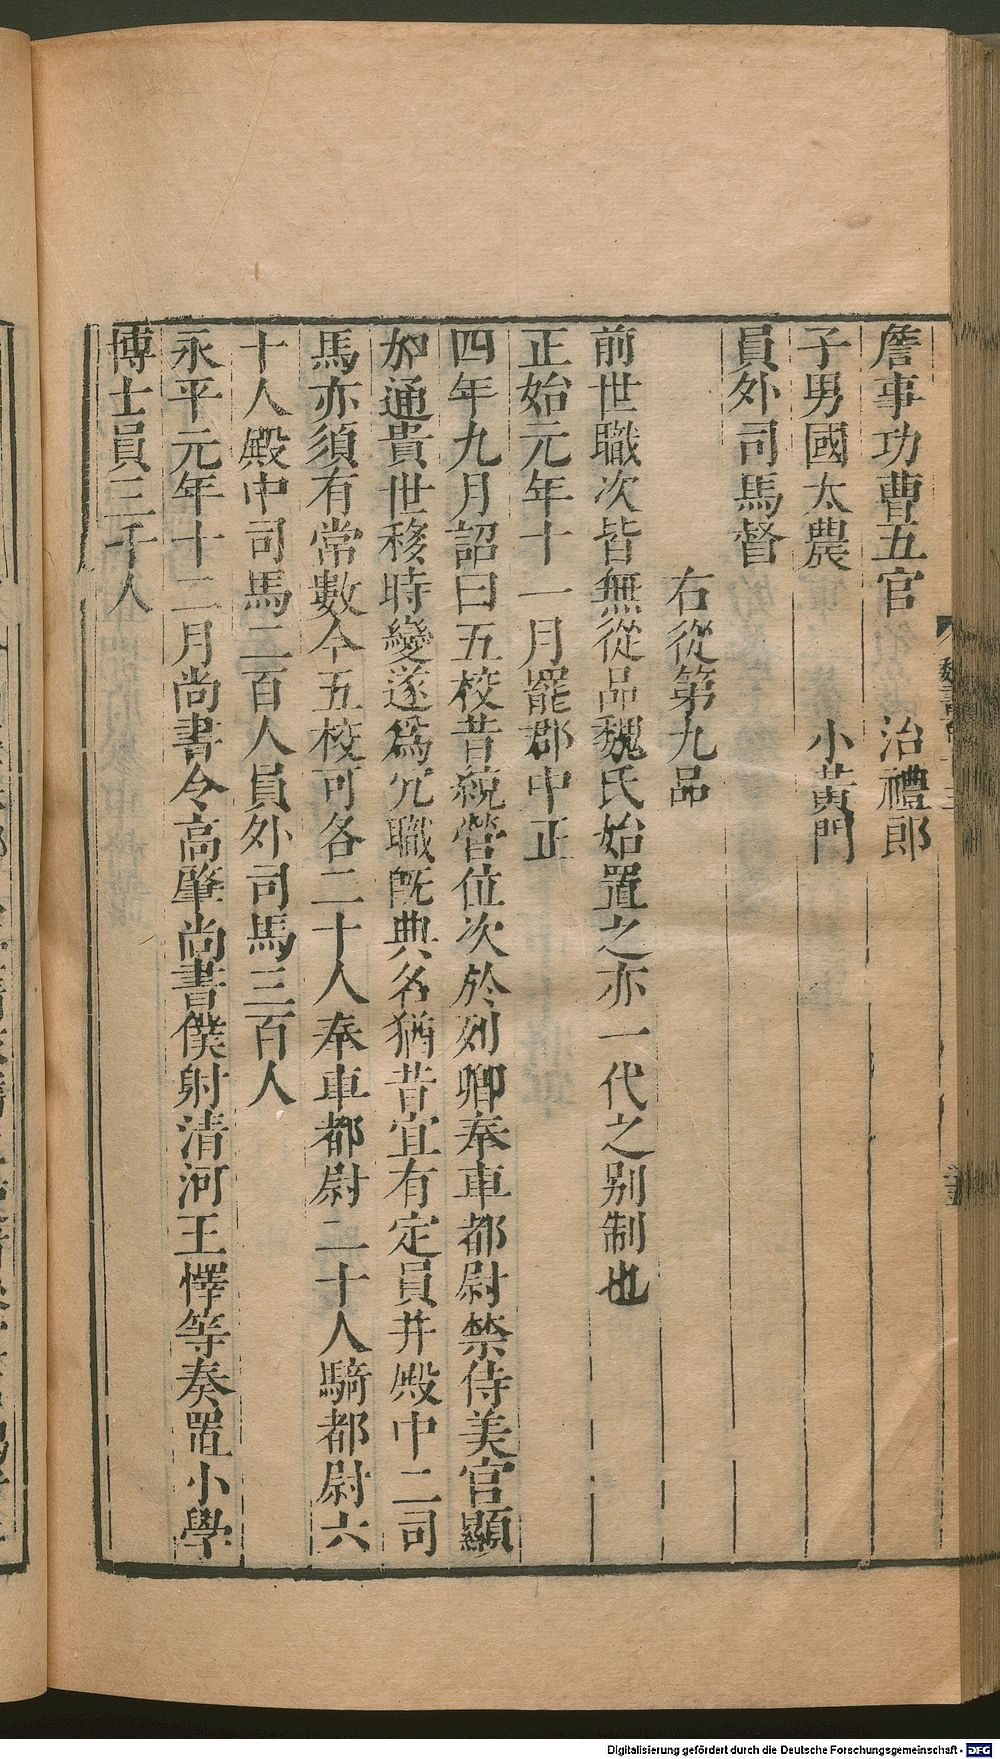 詹事功曹五官　治禮郎
子男國太農　小黃門
員外司馬督
右從第九品
前世職次皆無從品魏氏始置之亦一代之別制也
正始元年十一月罷郡中正
四年九月詔曰五校昔統營位次於列卿奉車都尉禁侍美官顯
加通貴世移時變遂爲冗職旣典名猶昔宜有定員并殿中二司
馬亦須有常數今五校可各二十人奉車都尉二十人騎都尉六
十人殿中司馬二百人員外司馬三百人
永平元年十二月尚書令高肇尚書僕射清河王懌等奏置小學
博士員三千人
Digitalisierung gefördert durch die Deutsche Forschungsgemeinschaft - DFG